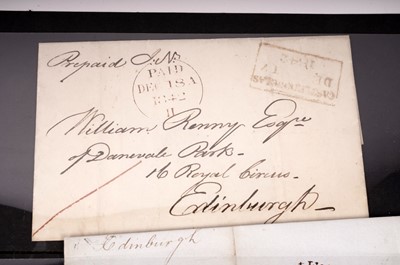 Prepaid
PAID
DEC 18 A
1842
William Renny Esqre
of Danevale Park -
16 Royal Circus -
Edinburgh -
Edinburgh